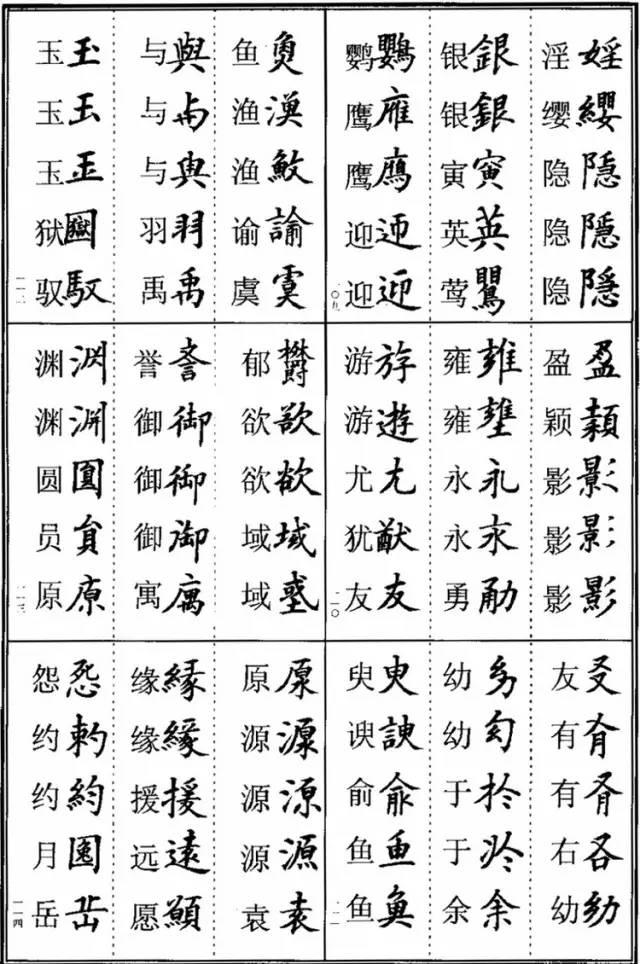 淫婬 缨纓 隐隱 隐隱 隐隱
银銀 银銀 寅寅 英英 莺鸎
鹦鸚 鹰雁 鹰 迎 迎迎
一〇九
盈盈 颖 影影 影影 影影
雍雍 雍壅 永永 永永 勇勈
游斿 游遊 尤尤 犹猷 友友
一一〇
友 有 有 右 幼幼
幼 幼 于扵 于 余余
臾臾 谀諛 俞俞 鱼魚 鱼魚
一一一
鱼 渔 渔 谕諭 虞虞
与與 与 与 羽羽 禹禹
玉玉 玉玉 玉玉 狱 驭馭
一一二
郁欝 欲 欲欲 域域 域
誉 御御 御御 御御 寓庽
渊渕 渊渊 圆圓 员員 原原
一一三
原原 源源 源源 源源 袁袁
缘緣 缘緣 援援 远遠 愿願
怨 约 约約 月囝 岳岳
一一四